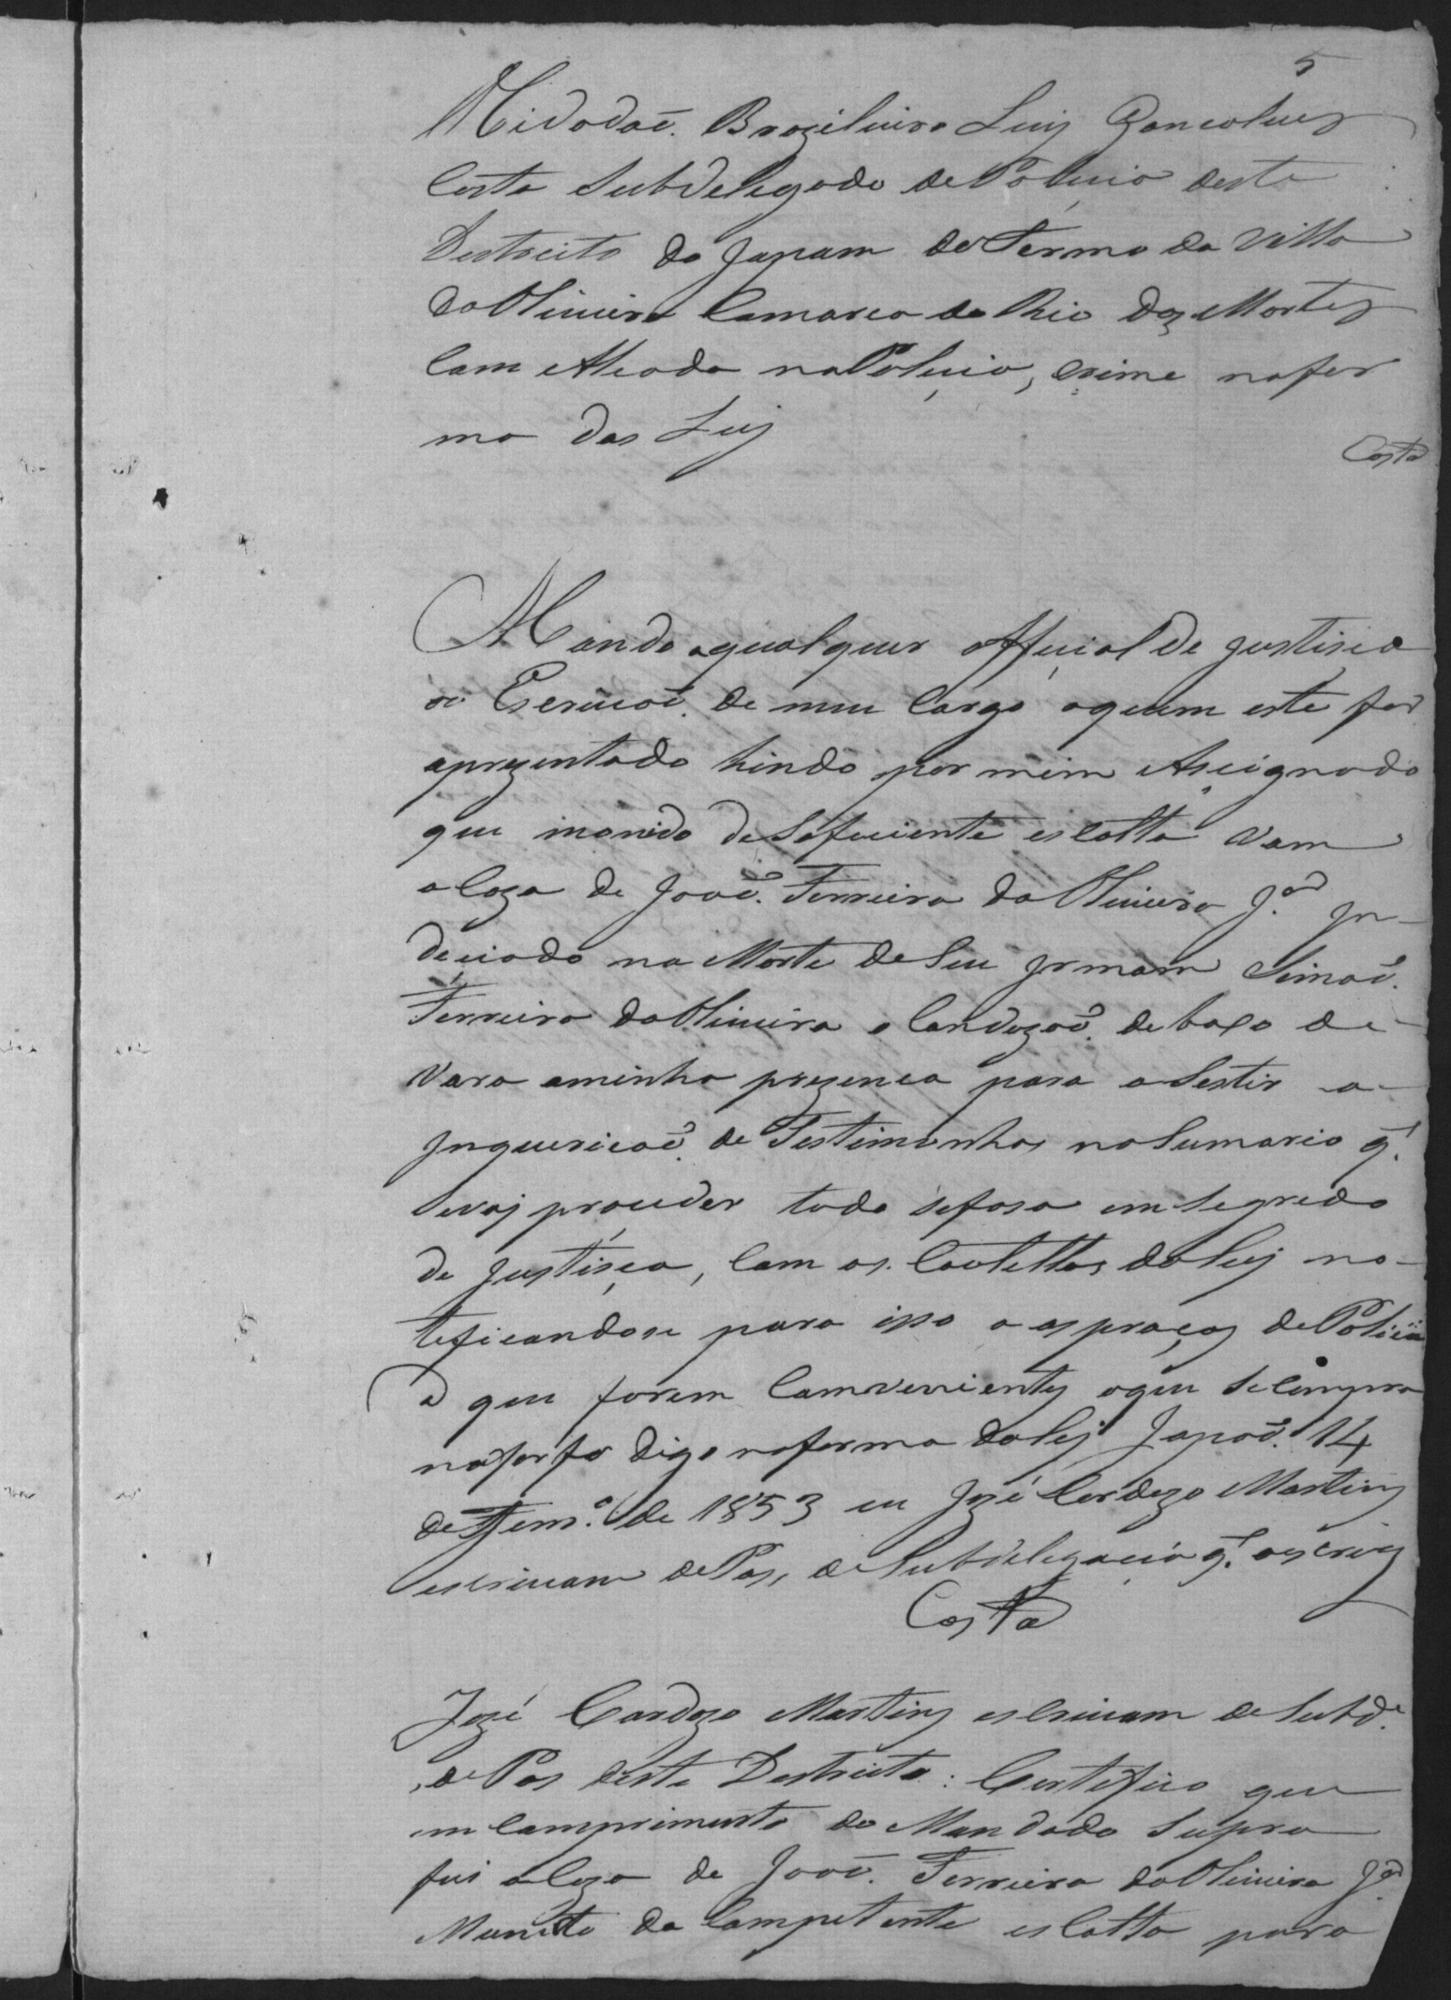 5
Cidadaõ. Brazileiro Luiz Goncalvez
Costa Subdelegado de Policia deste
Destreito do Japam do Termo da Villa
da Oliveira Camarca do Rio das Mortez
Com Alcada na Policia, crime na for
ma das Leij
Costa
Mando a qualquer official de justisia
ou Escrivaõ. de meu Cargo a quem este for
aprezentado hindo por mim Asignado
que monido de Suficiente escolta Vam
a Caza de Joaõ. Ferreira da Oliveira J.or In-
deciado na Morte de Seu Irmam Simaõ.
Ferreira da Oliveira e Conduzaõ. debaxo de
Vara a minha prezenca para a Sestir a
Inquericaõ. de Testimunhas no Sumario q.
Se vaj proceder todo se fasa em Segredo
de Justiça, Com as Cautellas da Leij no-
teficandose para isso a as praças de Policia
que forem Comvenientez o que Se Compra
na forfo digo na forma da Leij Japaõ. 14
de 1853 eu Jozé Cardozo Martinz
escrivam de Pas, de Subdelegacia q. o escrivij
Costa
Jozé Cardozo Martinz escrivam de Subd.e
e de Pas deste Destricto: Certifico que
em Comprimento do Mandado Supra
fui a Caza de Joaõ. Ferreira da Oliveira J.or
Munido da Competente escolta para